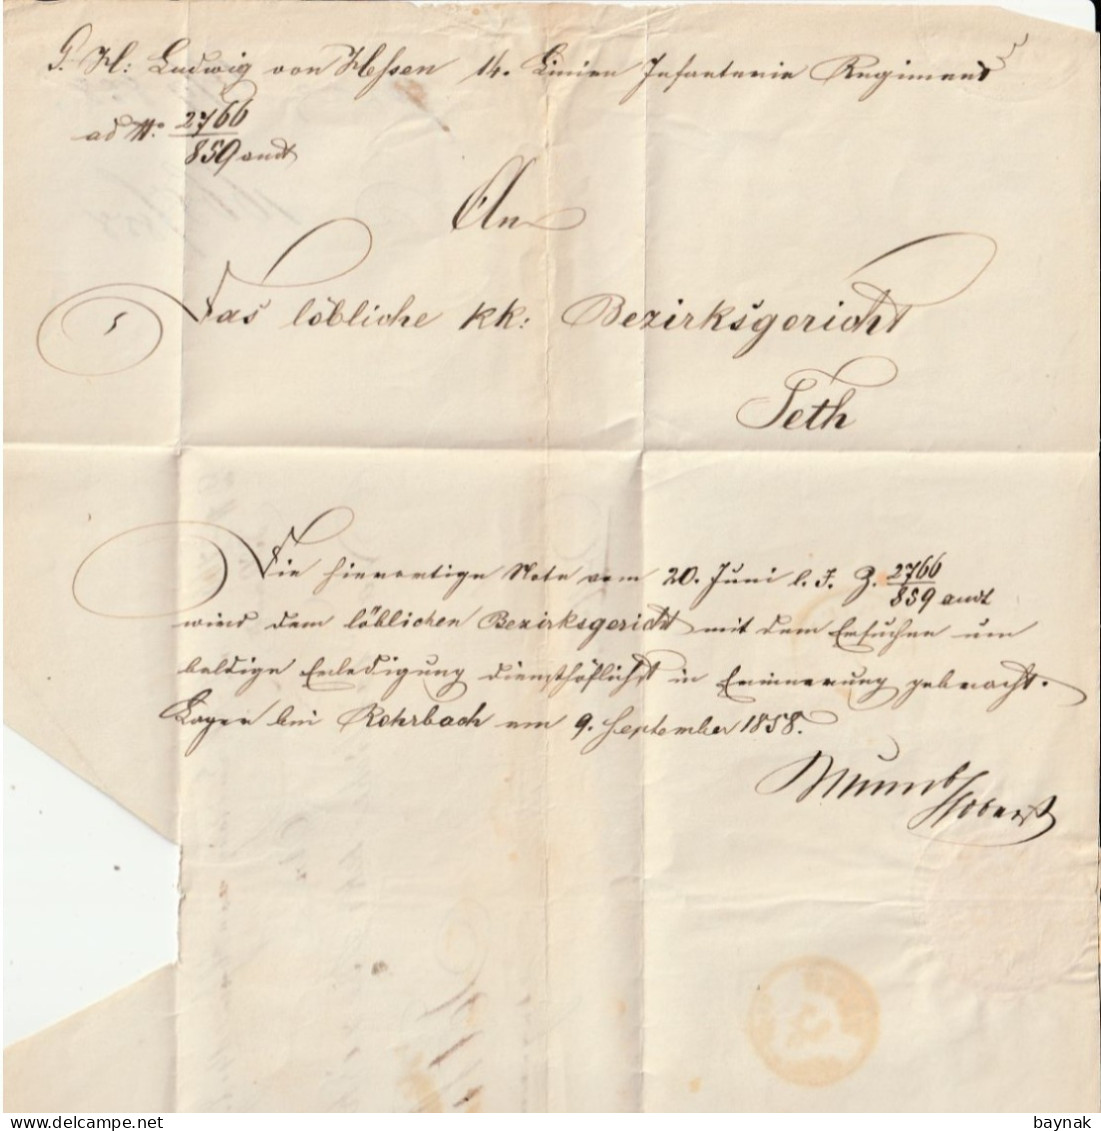 G. H: Ludwig von Hessen 14. Linien Infanterie Regiment
ad No. 2766
859 andt
An
Das löbliche kk: Bezirksgericht
Teth
Die hierortige Note vom 20. Juni l. J. Z. 2766
859 andt
wird dem löblichen Bezirksgericht mit dem Ersuchen um
baldige Erledigung diensthöflichst in Erinnerung gebracht.
Lager bei Rohrbach am 9. September 1858.
Oberst
baynak